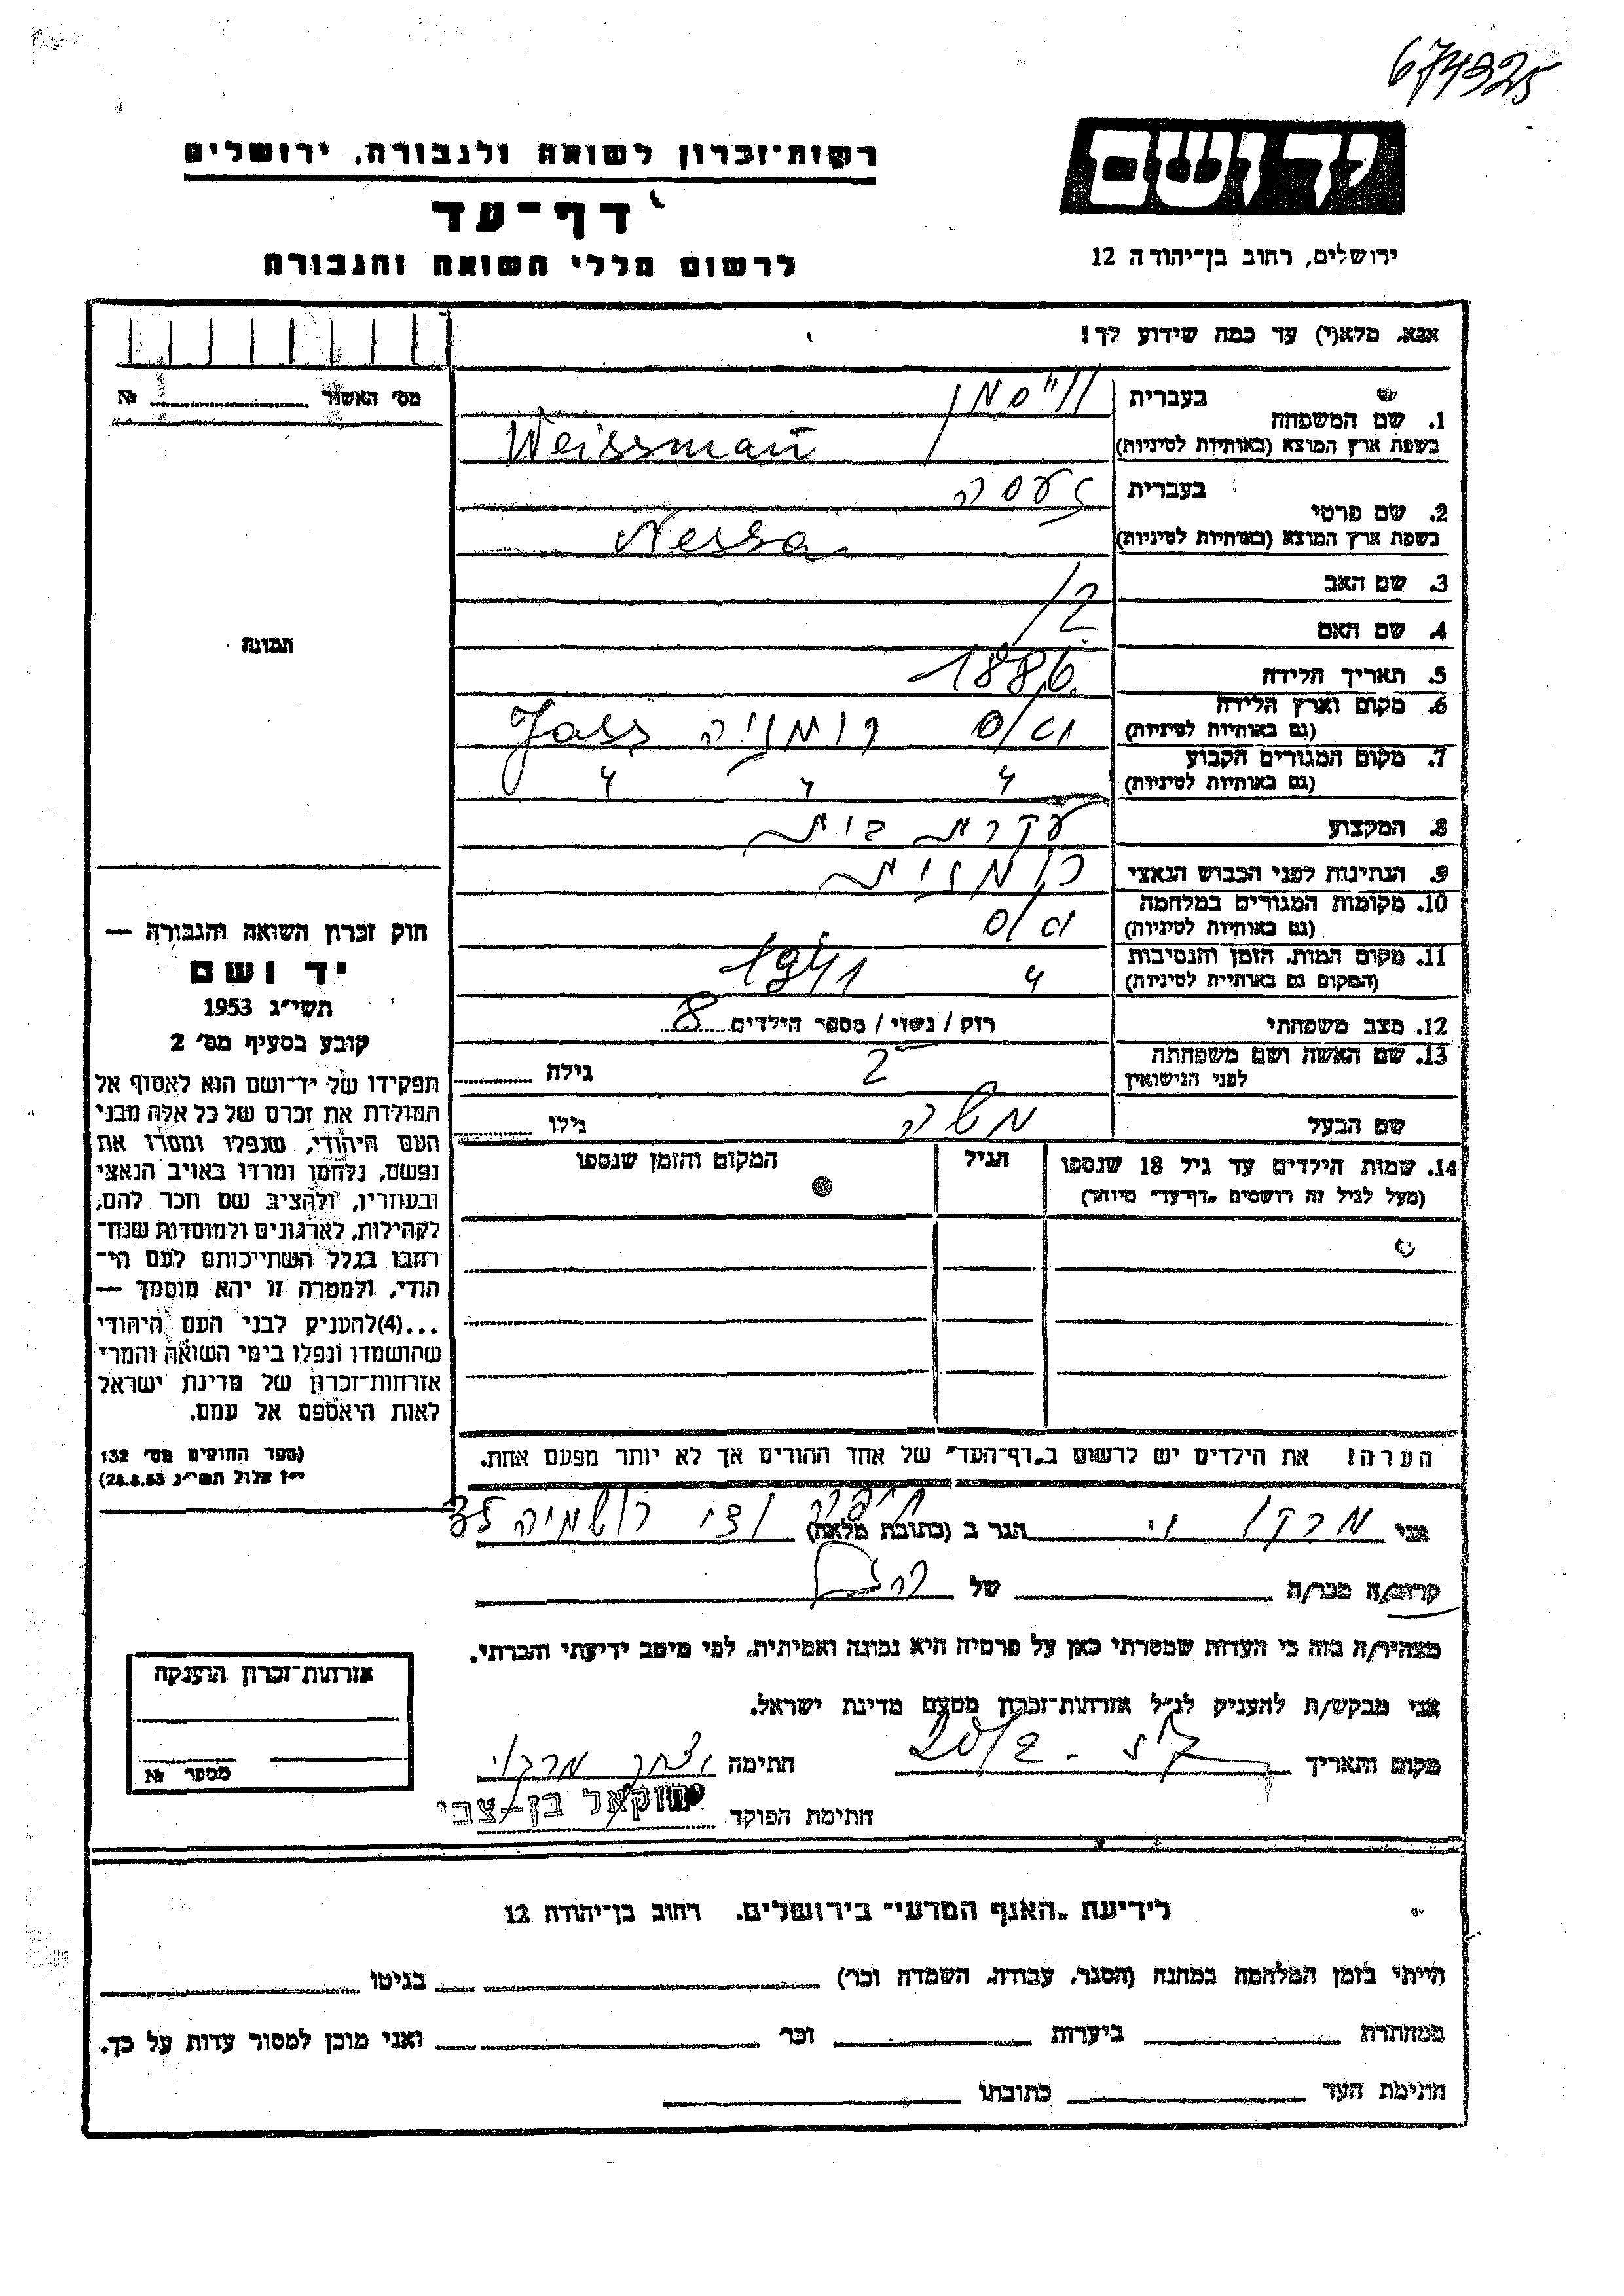 674325
יד ושם
רשות-זכרון לשואה ולגבורה. ירושלים
דף-עד
לרשום חללי השואה והגבורה
ירושלים, רחוב בן-יהודה 12
אנא. מלא(י) עד כמה שידוע לך!
מס' האשור № 
1. שם המשפחה
בעברית ווייסמן
בשפת ארץ המוצא (באותיות לטיניות) Weissman
2. שם פרטי
בעברית נעסה
בשפת ארץ המוצא (באותיות לטיניות) Nessa
3. שם האב
4. שם האם
5. תאריך הלידה 1886
6. מקום וארץ הלידה
(גם באותיות לטיניות) רומניה Jass
7. מקום המגורים הקבוע
(גם באותיות לטיניות) " " "
8. המקצוע עקרת בית
9. הנתינות לפני הכבוש הנאצי רומנית
10. מקומות המגורים במלחמה
(גם באותיות לטיניות)
11. מקום המות, הזמן והנסיבות
(המקום גם באותיות לטיניות) " 1941
12. מצב משפחתי רוק / נשוי / מספר הילדים 8
13. שם האשה ושם משפחתה
לפני הנישואין גילה
שם הבעל משה גילו
14. שמות הילדים עד גיל 18 שנספו
(מעל לגיל זה רושמים "דף-עד" מיוחד)
הגיל
המקום והזמן שנספו
הערה! את הילדים יש לרשום ב"דף-העד" של אחד ההורים אך לא יותר מפעם אחת.
תמונה
חוק זכרון השואה והגבורה —
יד ושם
תשי"ג 1953
קובע בסעיף מס' 2
תפקידו של יד-ושם הוא לאסוף אל
המולדת את זכרם של כל אלה מבני
העם היהודי, שנפלו ומסרו את
נפשם, נלחמו ומרדו באויב הנאצי
ובעוזריו, ולהציב שם וזכר להם,
לקהילות, לארגונים ולמוסדות שנח-
רחבו בגלל השתייכותם לעם הי-
הודי, ולמטרה זו יהא מוסמך —
...(4)להעניק לבני העם היהודי
שהושמדו ונפלו בימי השואה והמרי
אזרחות-זכרון של מדינת ישראל
לאות היאספם אל עמם.
(ספר החוקים מס' 132
י"ז אלול תשי"ג 28.8.53)
אני הגר ב (כתובת מלאה) חיפה ואדי רושמיה
קרוב/ה מכר/ה של
מצהיר/ה בזה כי העדות שמסרתי כאן על פרטיה היא נכונה ואמיתית, לפי מיטב ידיעתי והכרתי.
אני מבקש/ת להעניק לנ"ל אזרחות-זכרון מטעם מדינת ישראל.
מקום ותאריך חתימה
חתימת הפוקד יחזקאל בן-צבי
אזרחות-זכרון הוענקה
מספר №
לידיעת "האגף המדעי" בירושלים. רחוב בן-יהודה 12
הייתי בזמן המלחמה במחנה (הסגר, עבודה, השמדה וכו') בגיטו
במחתרת ביערות וכו' ואני מוכן למסור עדות על כך.
חתימת העד כתובתו